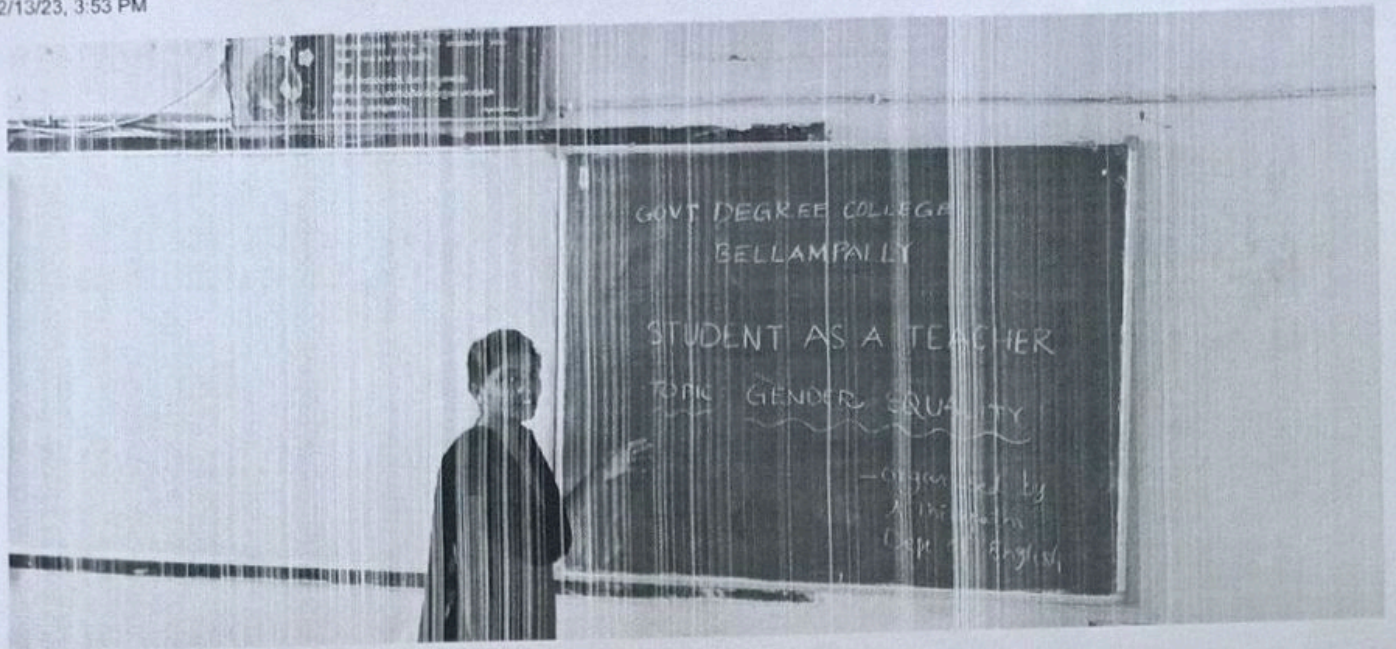 2/13/23, 3:53 PM
GOVT DEGREE COLLEGE
BELLAMPALLY
STUDENT AS A TEACHER
TOPIC GENDER EQUALITY
- organised by
Dept of English